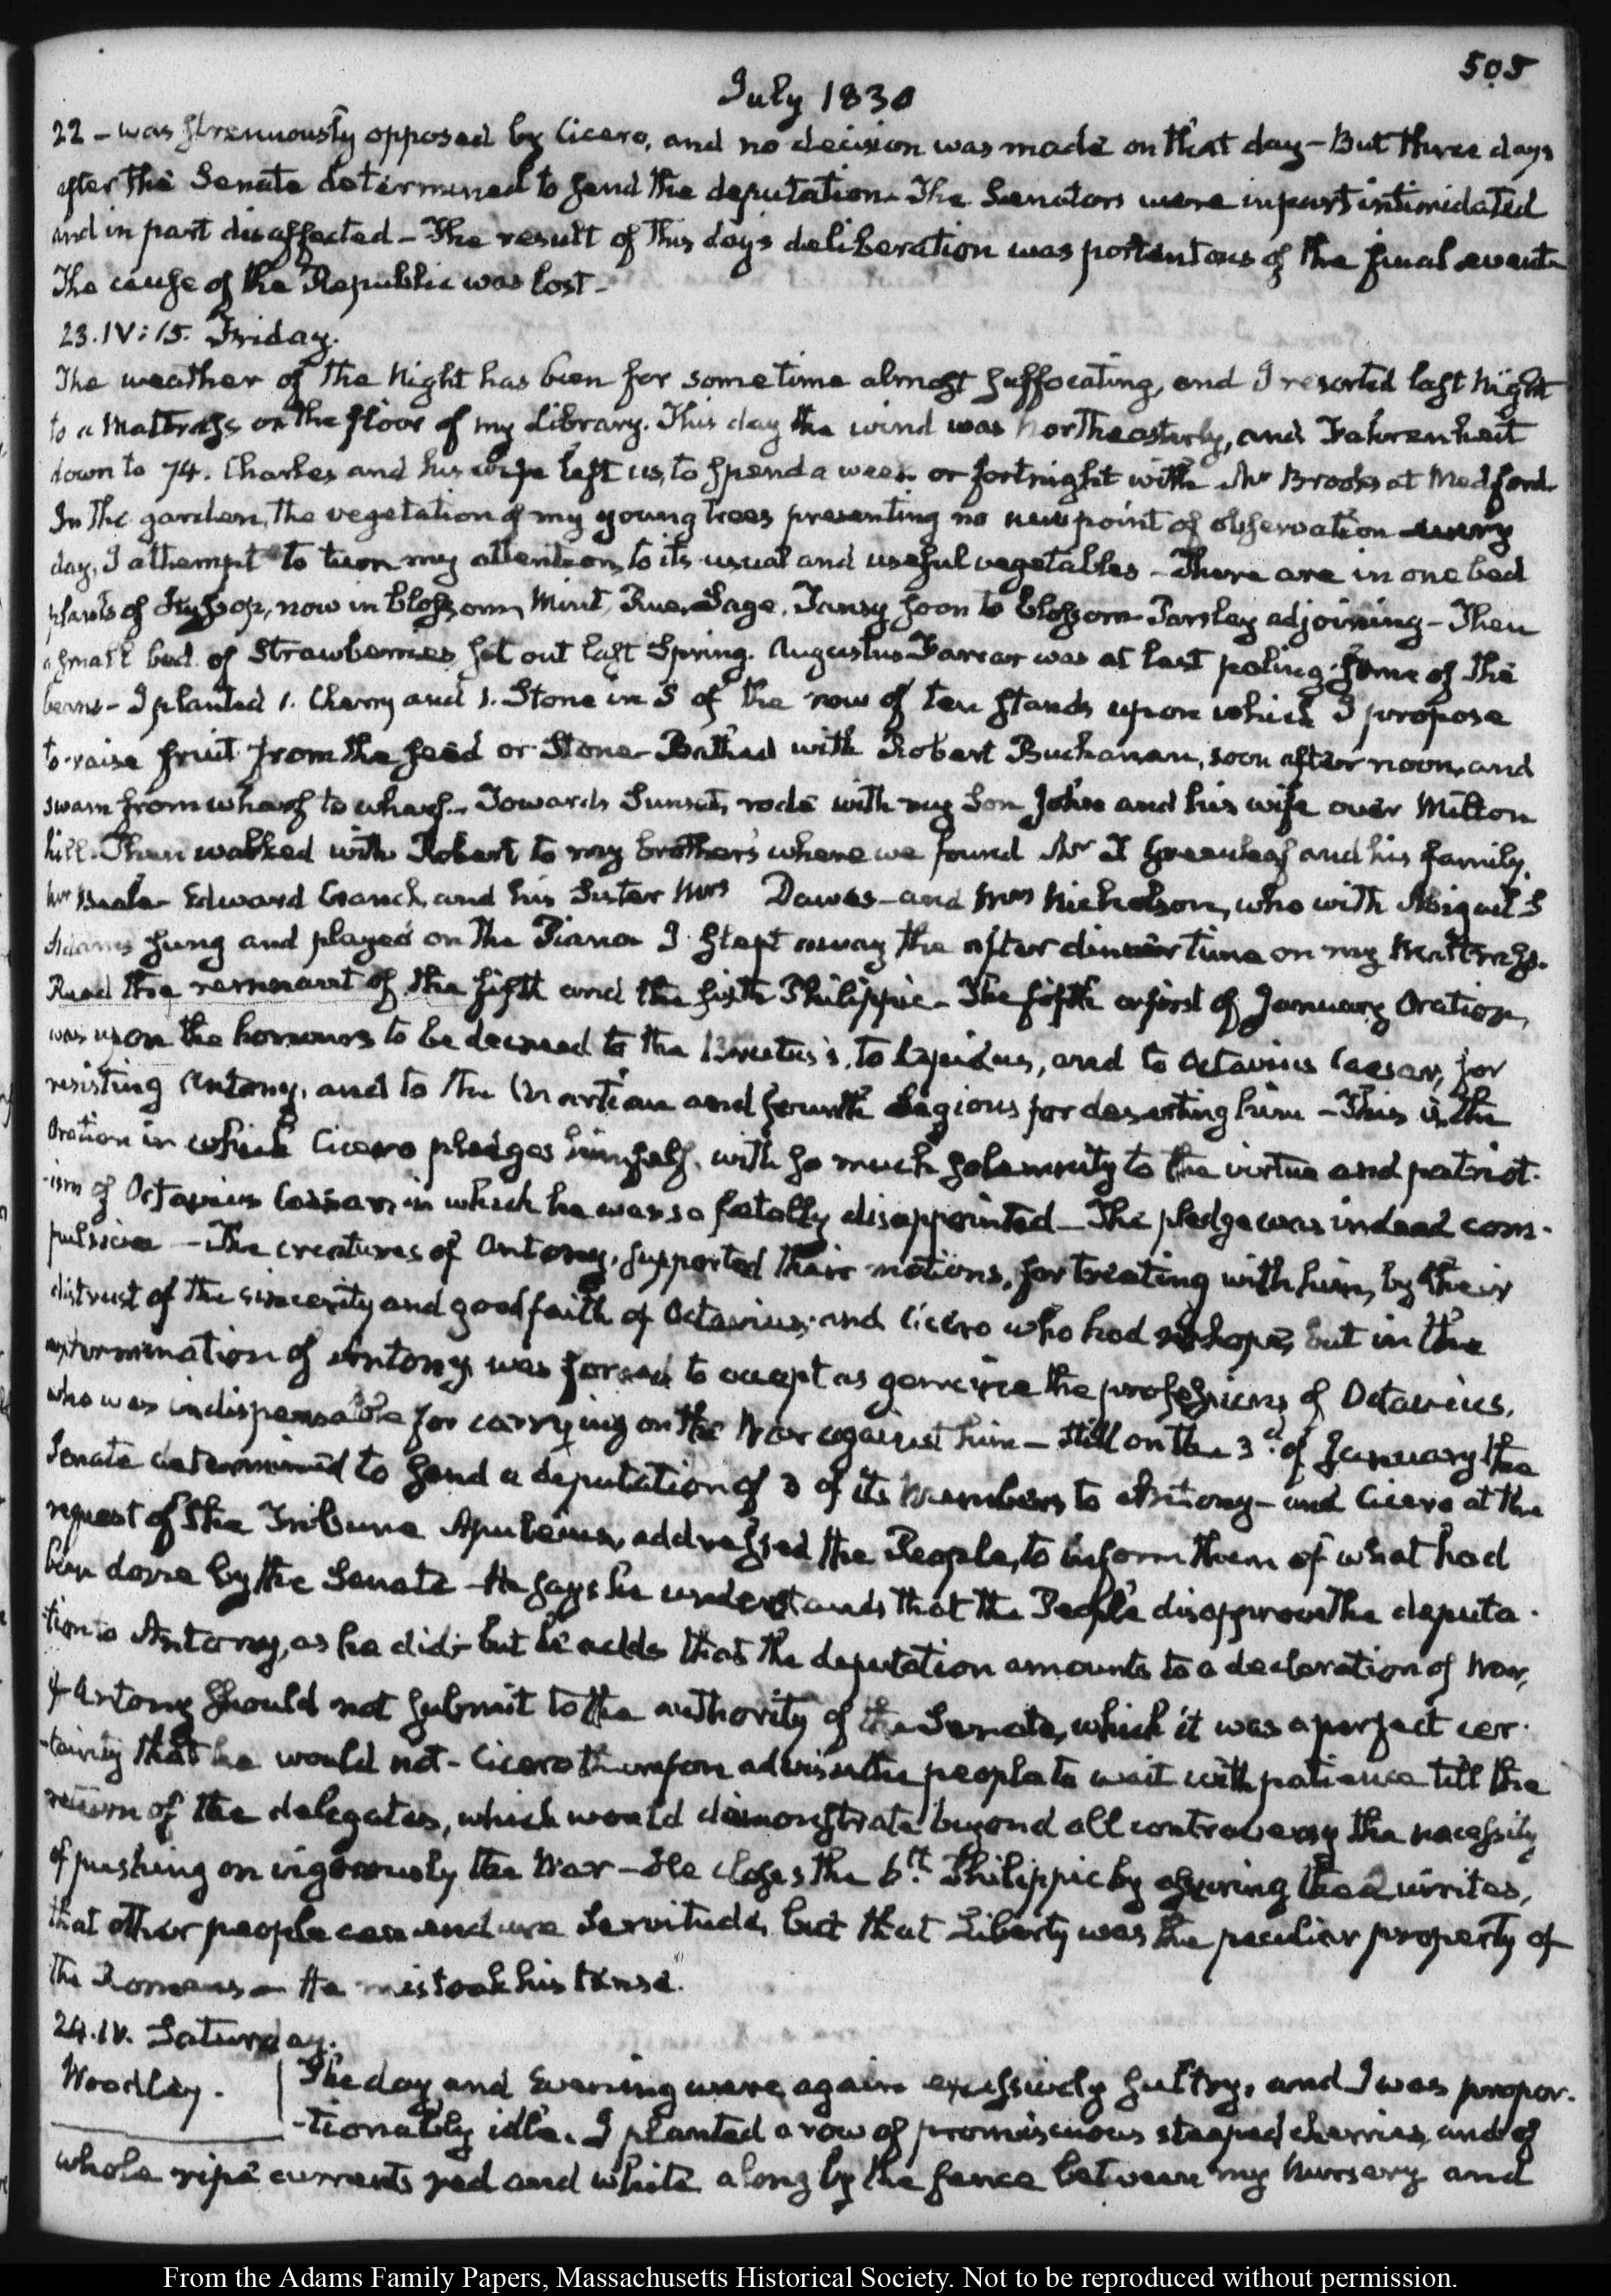 505
July 1830
22 – was strenuously opposed by Cicero, and no decision was made on that day – But three days
after the Senate determined to send the deputation – The Senators were in part intimidated
and in part disaffected – The result of this day's deliberation was portentous of the final event –
The cause of the Republic was lost –
23. IV:15. Friday.
The weather of the Night has been for some time almost suffocating, and I resorted last Night
to a Mattrass on the floor of my Library. This day the wind was Northeasterly, and Fahrenheit
down to 74. Charles and his wife left us, to spend a week or fortnight with Mr Brooks at Medford.
In the garden, the vegetation of my young trees presenting no new point of observation every
day, I attempt to turn my attention to its usual and useful vegetables – There are in one bed
plants of Hyssop, now in blossom, Mint, Rue, Sage, Tansy soon to blossom – Parsley adjoining – Then
a small bed of Strawberries set out last Spring. Augustus Farrar was at last poling some of the
beans – I planted 1. Cherry and 1. Stone in 5 of the row of ten stands upon which I propose
to raise fruit from the seed or Stone – Bathed with Robert Buchanan, soon after noon, and
swam from wharf to wharf – Towards Sunset, rode with my Son John and his wife over Milton
hill. Then walked with Robert to my brother's where we found Mr I Greenleaf and his family,
Mr Beale – Edward Cranch, and his Sister Mrs Dawes – and Mrs Nicholson, who with Abigail S
Adams sung and played on the Piano – I slept away the after dinner time on my Mattrass.
Read the remnant of the fifth and the sixth Philippic – The fifth or first of January Oration,
was upon the honours to be decreed to the Brutus's, to Lepidus, and to Octavius Caesar, for
resisting Antony, and to the Martian and fourth Legions for deserting him – This is the
Oration in which Cicero pledges himself, with so much solemnity to the virtue and patriot-
-ism of Octavius Caesar, in which he was so fatally disappointed – The pledge was indeed com-
pulsive – The creatures of Antony, supported their motions, for treating with him, by their
distrust of the sincerity and good faith of Octavius; and Cicero who had no hope, but in the
extermination of Antony, was forced to accept as genuine the professions of Octavius,
who was indispensable for carrying on the War against him – Still on the 3d. of January the
Senate determined to send a deputation of 3 of its Members to Antony – and Cicero at the
request of the Tribune Apuleius, addressed the People, to inform them of what had
been done by the Senate – He says he understands that the People disapprove the deputa-
tion to Antony, as he did; but he adds that the deputation amounts to a declaration of War,
if Antony should not submit to the authority of the Senate, which it was a perfect cer-
-tainty that he would not – Cicero therefore advises the people to wait with patience till the
return of the delegates, which would demonstrate beyond all controversy the necessity
of pushing on vigorously the War – He closes the 6th. Philippic by assuring the Quirites,
that other people can endure Servitude, but that Liberty was the peculiar property of
the Romans – He mistook his tense.
24. IV. Saturday.
Woodley. The day and Evening were again excessively sultry, and I was propor-
-tionately idle. I planted a row of promiscuous steaped cherries, and of
whole ripe currants red and white along by the fence between my Nursery and
From the Adams Family Papers, Massachusetts Historical Society. Not to be reproduced without permission.